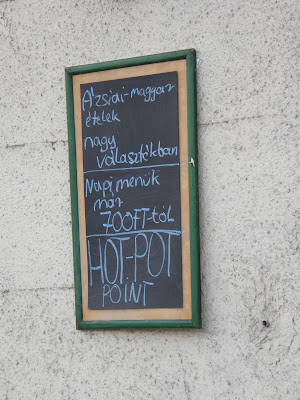 Ázsiai-magyar
ételek
nagy
választékban
Napi menük
már
700FT-tól
HOT-POT
POINT